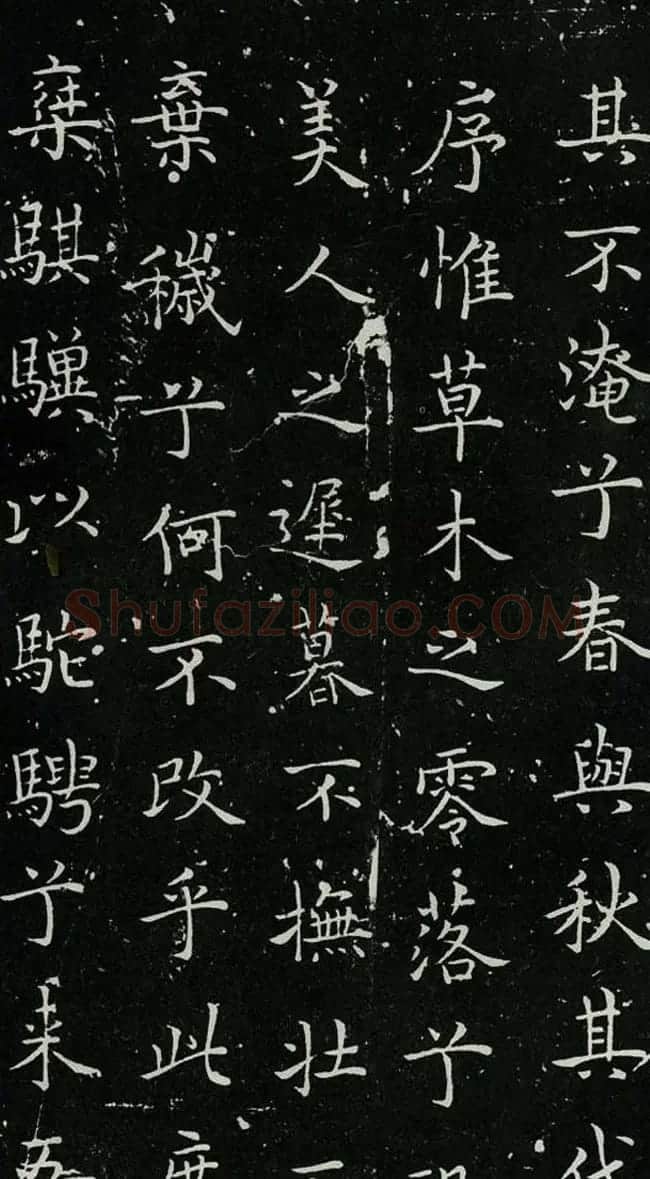 其不淹兮春與秋其代
序惟草木之零落兮
美人之遲暮不撫壯
棄穢兮何不改乎此度
椉騏驥以駝騁兮来吾
Shufaziliao.COM